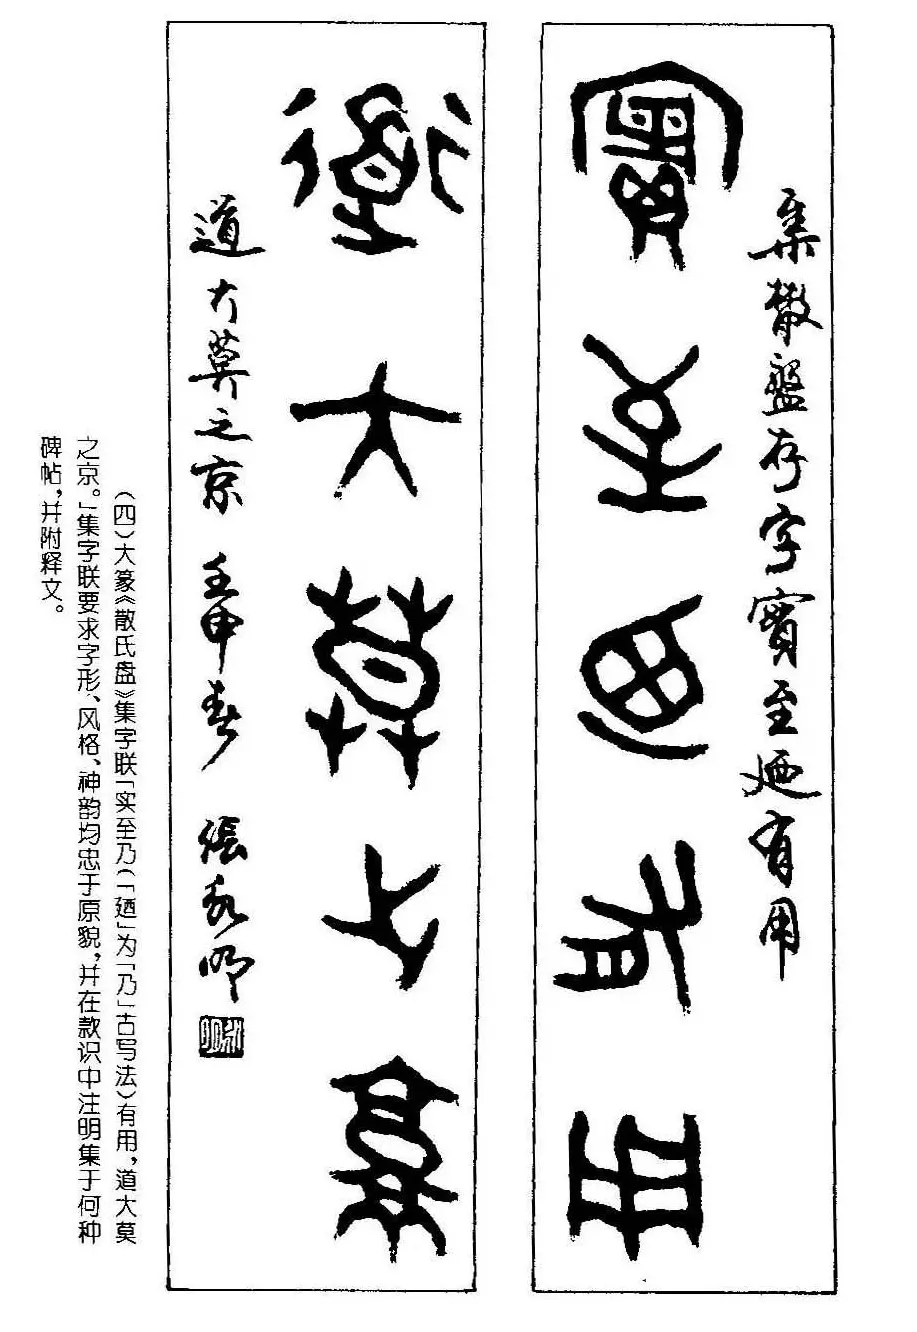 集散盤存字實至廼有用
實至廼有用
道大莫之京
道大莫之京 壬申春 張永明
（四）大篆《散氏盘》集字联「实至乃（「廼」为「乃」古写法）有用，道大莫
之京。」集字联要求字形、风格、神韵均忠于原貌，并在款识中注明集于何种
碑帖，并附释文。